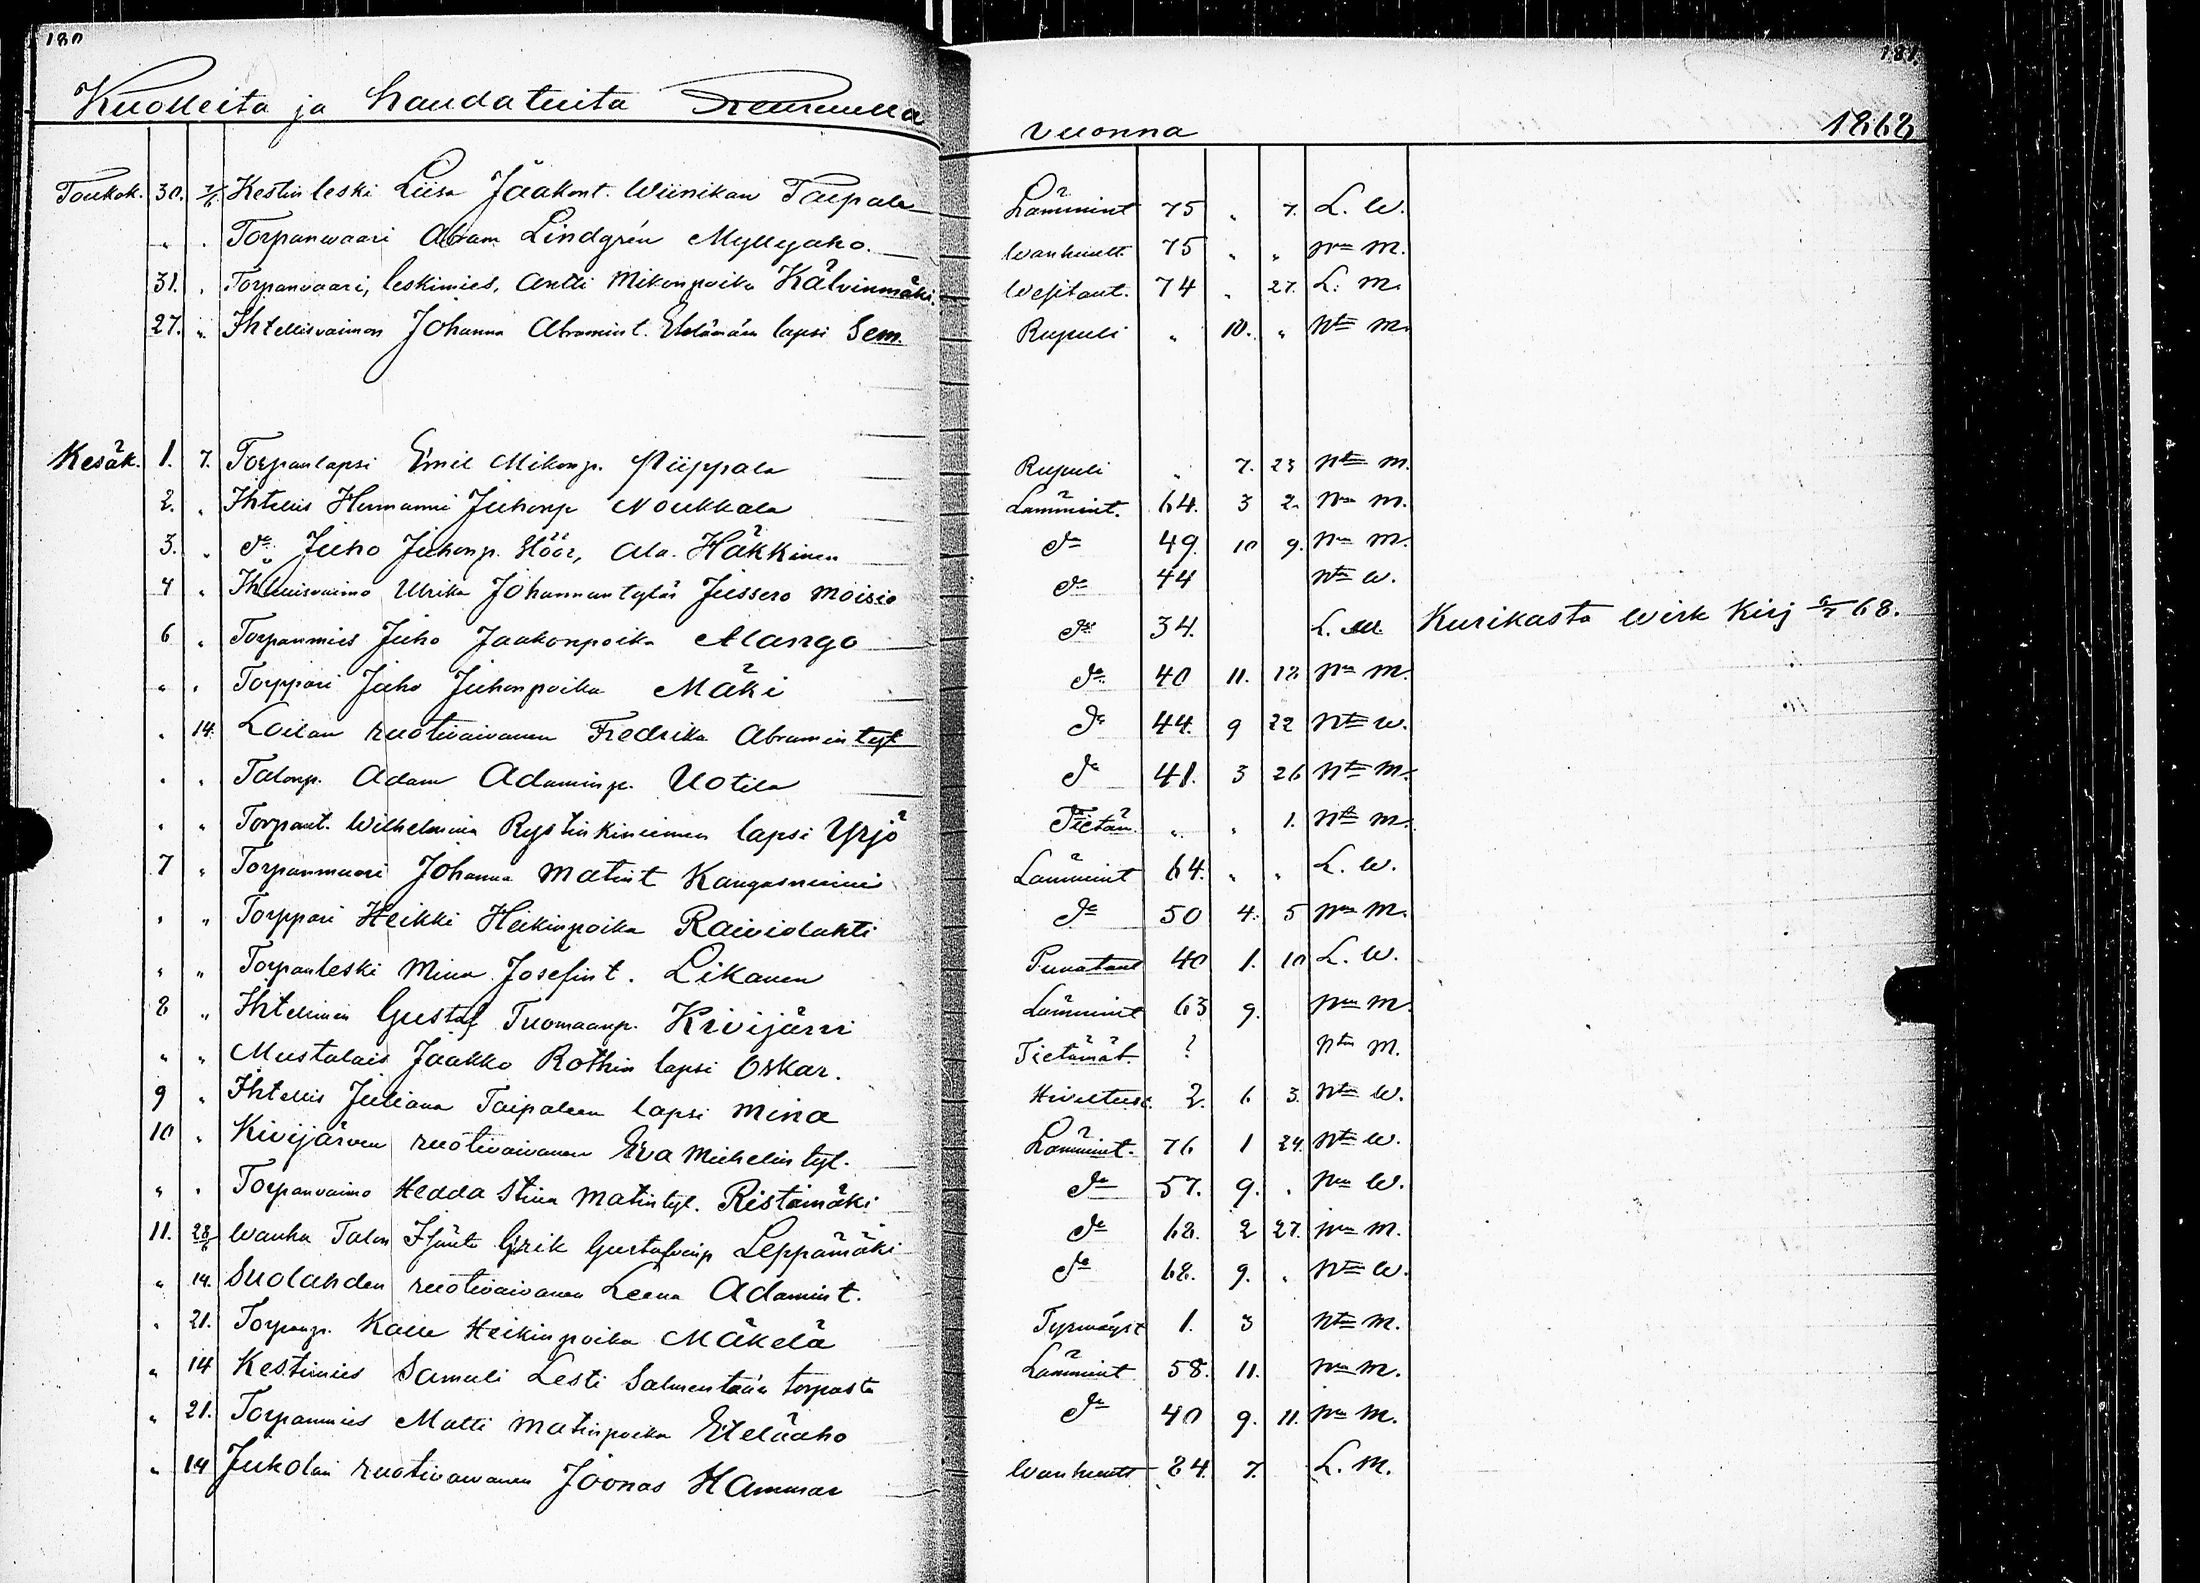 180
181.
Kuolleita ja haudatuita Keuruulla vuonna 1868
Toukok. 30. 7/6 Kestin leski Liisa Jaakont. Wiinikan Taipale Lämmint 75 " 7. L. W.
" . Torpanwaari Abram Lindgrén Myllyaho. Wanhuutt. 75 " " Nn M.
31. " Torpanvaari, leskimies, Antti Mikonpoika Kälvinmäki. Wesitaut. 74 " 27. L. M.
27. " Ihtellisvaimon Johanna Abramint. lapsi Sem. Rupuli " 10. " Ntn M.
Kesäk. 1. 7. Torpanlapsi Emil Mikonp. Piippala Rupuli " 7. 23 Ntn M.
2. " Ihtellis Hermanni Juhonp Noukkala Lämmint. 64. 3 2. Nn M.
3. " do Juho Juhonp. Höör, Ala. Häkkinen do 49. 10 9. Nn M.
4 " Ihtellisvaimo Ulrika Johannantytär Jussero Moisio do 44 Ntn W.
6 " Torpanmies Juho Jaakonpoika Alango do 34. L. M. Kurikasta Wirk Kirj 68.
" " Torppari Juho Juhonpoika Mäki do 40 11. 12 Nn M.
" 14. Loilan ruotivaivanen Fredrika Abramintyt do 44. 9 22 Ntn W.
" " Talonp. Adam Adaminp. Uotila do 41. 3 26 Ntn M.
" " Torpant. Wilhelmina lapsi Yrjö Tietän. " " 1. Ntn M.
7 " Torpanmuori Johanna Matint Kangasniemi Lämmint 64. " " L. W.
" " Torppari Heikki Heikinpoika Raiviolahti do 50 4. 5 Nn M.
" " Torpanleski Mina Josefint. Likanen Punataut 40 1. 10 L. W.
8 " Ihtellinen Gustaf Tuomaanp. Kivijärvi Lämmint 63 9. Nn M
" " Mustalais Jaakko Rothin lapsi Oskar. Tietämät. ? Ntn M.
9 " Ihtellis Juliana Taipaleen lapsi Mina 2. 6 3. Ntn W.
10 " Kivijärven ruotivaivanen Eva Mickelintyt. Lämmint. 76 1 24. Ntn W.
" " Torpanvaimo Hedda Stiina Matintyt. Ristimäki do 57. 9. " Nn W.
11. 28/6 Wanha Talon Isäntä Erik Gustafvinp Leppämäki do 68. 2 27. Nn M.
" 14. Suolahden ruotivaivanen Leena Adamint. do 68. 9. " Ntn W.
" 21. Torpanp. Kalle Heikinpoika Mäkelä 1. 3 Ntn M.
" 14 Kestimies Samuli Lesti torpasta Lämmint 58. 11. Nn M.
" 21. Torpanmies Matti Matinpoika Eteläaho do 40 9. 11. Nn M.
" 14 Jukolan ruotivaivanen Joonas Hammar Wanhuutt 84. 7. L. M.